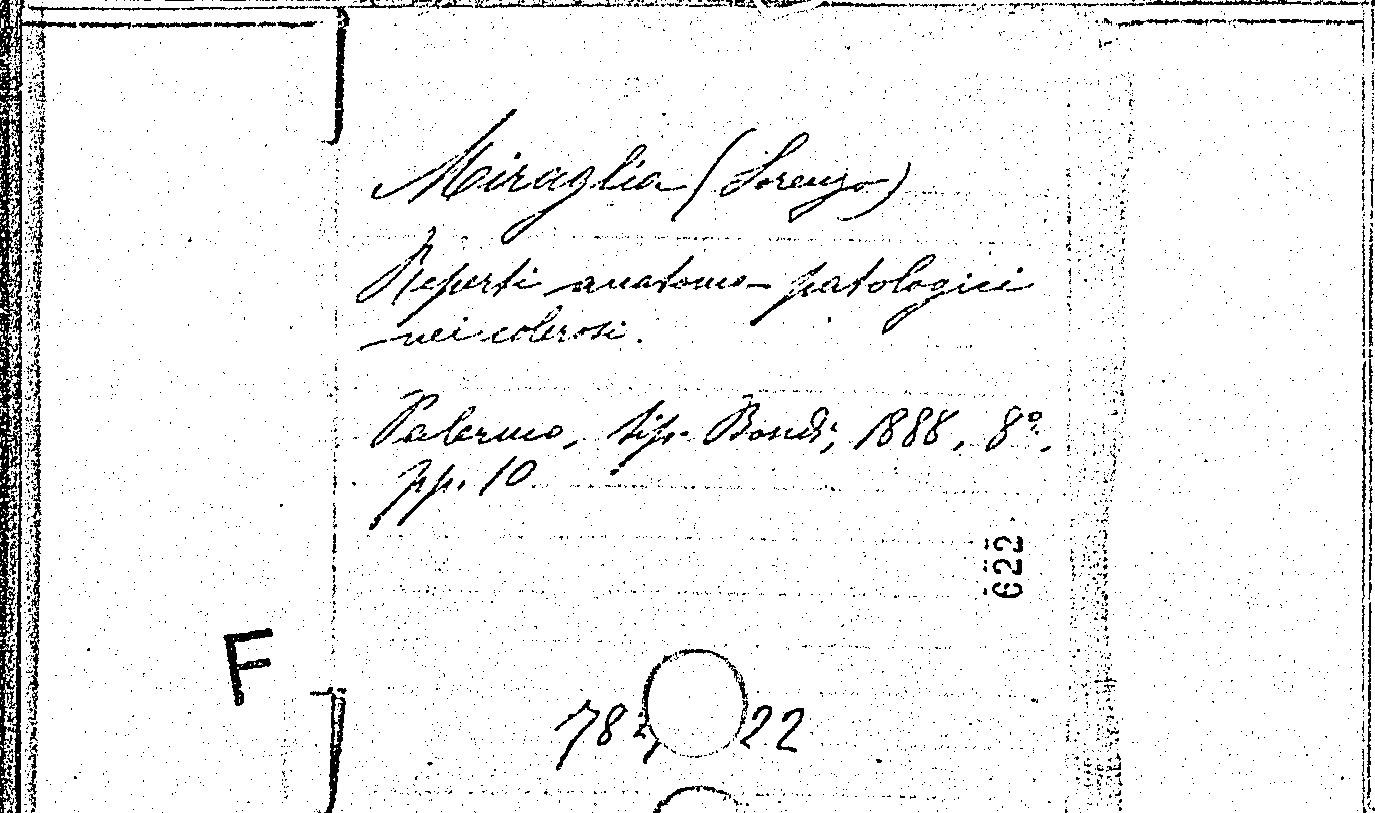 Miraglia (Lorenzo)
Reperti anatomo-patologici
nei colerosi.
Palermo, tip. Bondi, 1888, 8º,
pp. 10
622
F
22